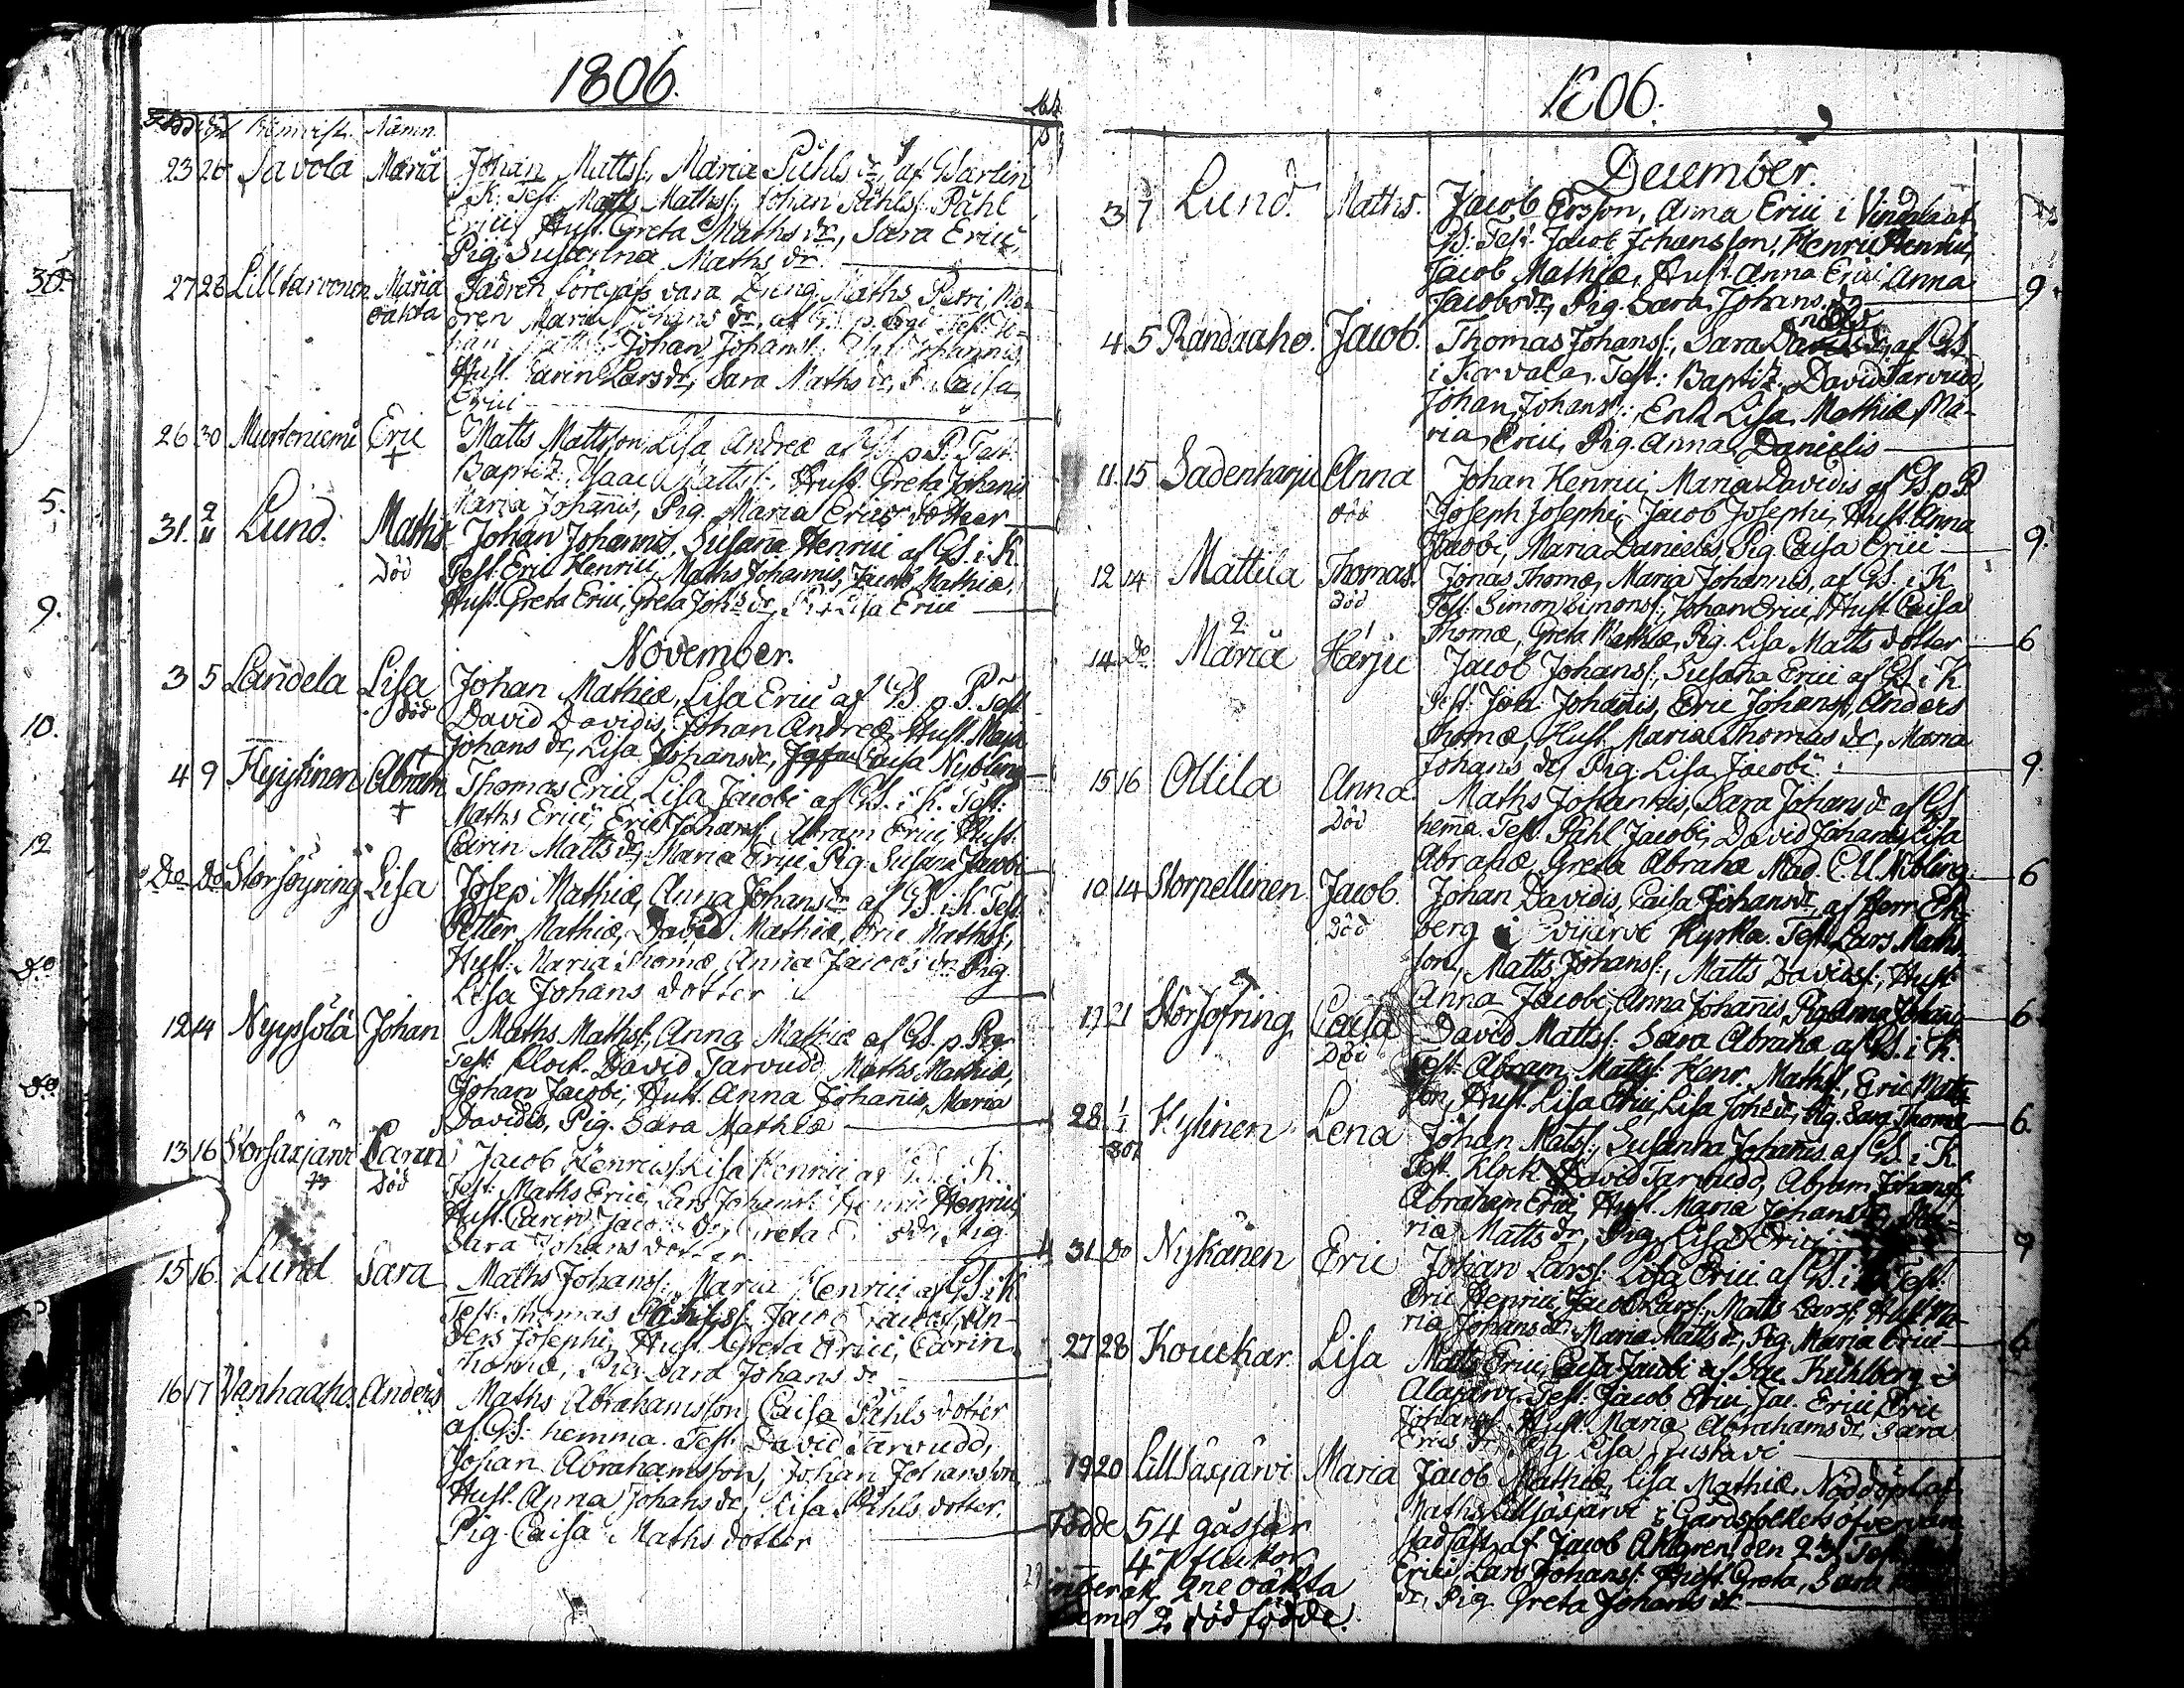 1806.
Hemvist. Namn.
23 26 Savola Maria Johan Mattss. Maria Påhls dr af
K. Test. Matts Mathss. Johan Påhlss. Påhl
Erici, Hust. Greta Maths dr, Sara Erici,
Pig. Susanna Maths dr.
27 28 Lilltarvonen Maria Fadren föregafs vara Dräng Maths Petri, Mo-
oäkta dren Maria Johans dr, af
Johan Johanss.
Hust. Carin Lars dr, Sara Maths dr, Caisa
Erici
26 30 Murtoniemi Eric Matts Mattsson, Lisa Andreæ af GS. p. P. Test.
+ Baptiz. Isaac Mattss. Hust. Greta Johanis
Maria Johanis, Pig. Maria Erics dotter
31. 2/11 Lund. Maths Johan Johannis, Susana Henrici af GS. i K.
Död Test. Eric Henrici, Maths Johannis, Jacob Mathiæ,
Hust. Greta Erici, Greta Johs dr, Lisa Erici
November.
3 5 Landela Lisa Johan Mathiæ, Lisa Erici af GS. p. P. Test.
död David Davidis, Johan Andreæ, Hust. Maja
Johans dr, Lisa Johans dr, Caisa Nybling
4 9 Hyytinen Abram Thomas Erici, Lisa Jacobi af GS. i K. Test:
+ Maths Erici, Eric Johanss. Abram Erici, Hust.
Carin Matts dr, Maria Erici, Pig. Susana Jacobi
Do Do Storsyring Lisa Josep Mathiæ, Anna Johans dr af GS. i K. Test.
Petter Mathiæ, David Mathiæ, Eric Mathss.
Hust. Maria Thomæ, Anna Jacobs dr Pig.
Lisa Johans dotter
12 14 Nyyssölä Johan Maths Mathss. Anna Mathiæ af GS. p. Pig.
Test. Klock. David Tarvudd, Maths Mathiæ,
Johan Jacobi, Hust. Anna Johannis, Maria
Davidis, Pig. Sara Mathiæ
13 16 Storsäxjärvi Carin Jacob Henricss. Lisa Henrici af GS. i K.
Död Test: Maths Erici, Lars Johanss. Henric Henrici,
Hust. Carin dr, Greta Pig.
Sara Johans dotter
15 16. Lund Sara Maths Johanss. Maria Henrici af GS. i K
Test. Thomas Påhlss. Jacob An-
ders Josephi, Hust. Greta Erici, Carin
Thomæ, Pig. Sara Johans dr
16 17 Vanhaaho. Anders Maths Abrahamsson, Caisa Påhls dotter
af GS. hemma. Test. David Tarvudd,
Johan Abrahamsson, Johan Johansson,
Hust. Anna Johans dr, Lisa Påhls dotter,
Pig. Caisa Maths dotter
1806.
December.
3 7 Lund. Maths. Jacob Ersson, Anna Erici i Vindala af
GS. Test. Jacob Johansson, Henric Henrici,
Jacob Mathiæ, Hust. Anna Erici Anna
Jacobs dr, Pig. Sara Johans dr 9.
4 5 Randaaho. Jacob. Thomas Johanss. Sara af GS
i Korvola. Test: Baptiz. David Tarvudd,
Johan Johanss. Enk. Lisa Mathiæ, Ma-
ria Erici, Pig. Anna Danielis
11. 15 Sadenharju Anna Johan Henrici, Maria Davidis af GS. p. P
död Joseph Josephi, Jacob Josephi, Hust. Anna
Jacobi, Maria Danielis, Pig. Caisa Erici 9.
12 14 Mattila Thomas. Jonas Thomæ, Maria Johannis, af GS. i K
död Test: Simon Simonss. Johan Erici, Hust. Caisa
Thomæ, Greta Mathiæ, Pig. Lisa Matts dotter 6
14 Do 2 Maria 1 Harju Jacob Johanss. Susana Erici af GS. i K
Test: Joh. Johanis, Eric Johanss. Anders
Thomæ, Hust. Maria Thomas dr, Maria
Johans dr, Pig. Lisa Jacobi 9
15 16 Ollila Anna Maths Johannis, Sara Johans dr af GS
Död hemma. Test. Påhl Jacobi, David Johanis, Lisa
Abrahæ, Greta Abrahæ Mad. C. U. Nibling 6
10 14 Storpellinen Jacob. Johan Davidis, Caisa Johans dr, af Herr Ek-
Död berg i Evijärvi Kyrka. Test. Lars Maths-
son, Matts Johanss., Matts Davidss., Hust.
Anna Jacobi, Anna Johanis, Pig. Anna Johanis 6.
17 21 Storsöfring Caisa David Mattss. Sara Abrahæ af GS. i K.
Död Test: Abram Mattss. Henr. Mathss. Eric Matts-
son, Hust. Lisa Erici, Lisa Johs dr, Pig. Sara Thomæ 6.
28 1/1 807 Kylinen Lena Johan Matss. Susanna Johannis af GS. i K
Test. Klock David Tarvudd, Abram Johanss.
Abraham Erici, Hust. Maria Johans dr, Ma-
ria Matts dr, Pig. Lisa Erici 9
31. Do Nykänen Eric Johan Larss. Lisa Erici af GS. i K. Test:
Eric Henrici, Jacob Larss. Matts Larss. Hust. Ma-
ria Johans dr, Maria Matts dr, Pig. Maria Erici 6.
27 28 Kouckar. Lisa Matts Erici, Caisa Jacobi af Sac. Kuhlberg i
Alajärvi. Test. Jacob Erici, Jac. Erici, Eric
Johanss. Hust. Maria Abrahams dr, Sara
Erics dr Pig Lisa Gustavi
19 20 Lillsäxjärvi Maria Jacob Mathiæ, Lisa Mathiæ, Nöddöpt af
Maths Lillsäxjärvi i Gårdsfolkets öfvervaro
stadfäst af Jacob Ahlgren den 23. Test.
Erici, Lars Johanss. Hust. Greta, Sara
dr, Pig. Greta Johans dr
Födde 54 gåssar
47 flickor
inberäk. 2ne oäkta
samt 2 död födde.
30.
5.
9.
10.
12
Do
Do